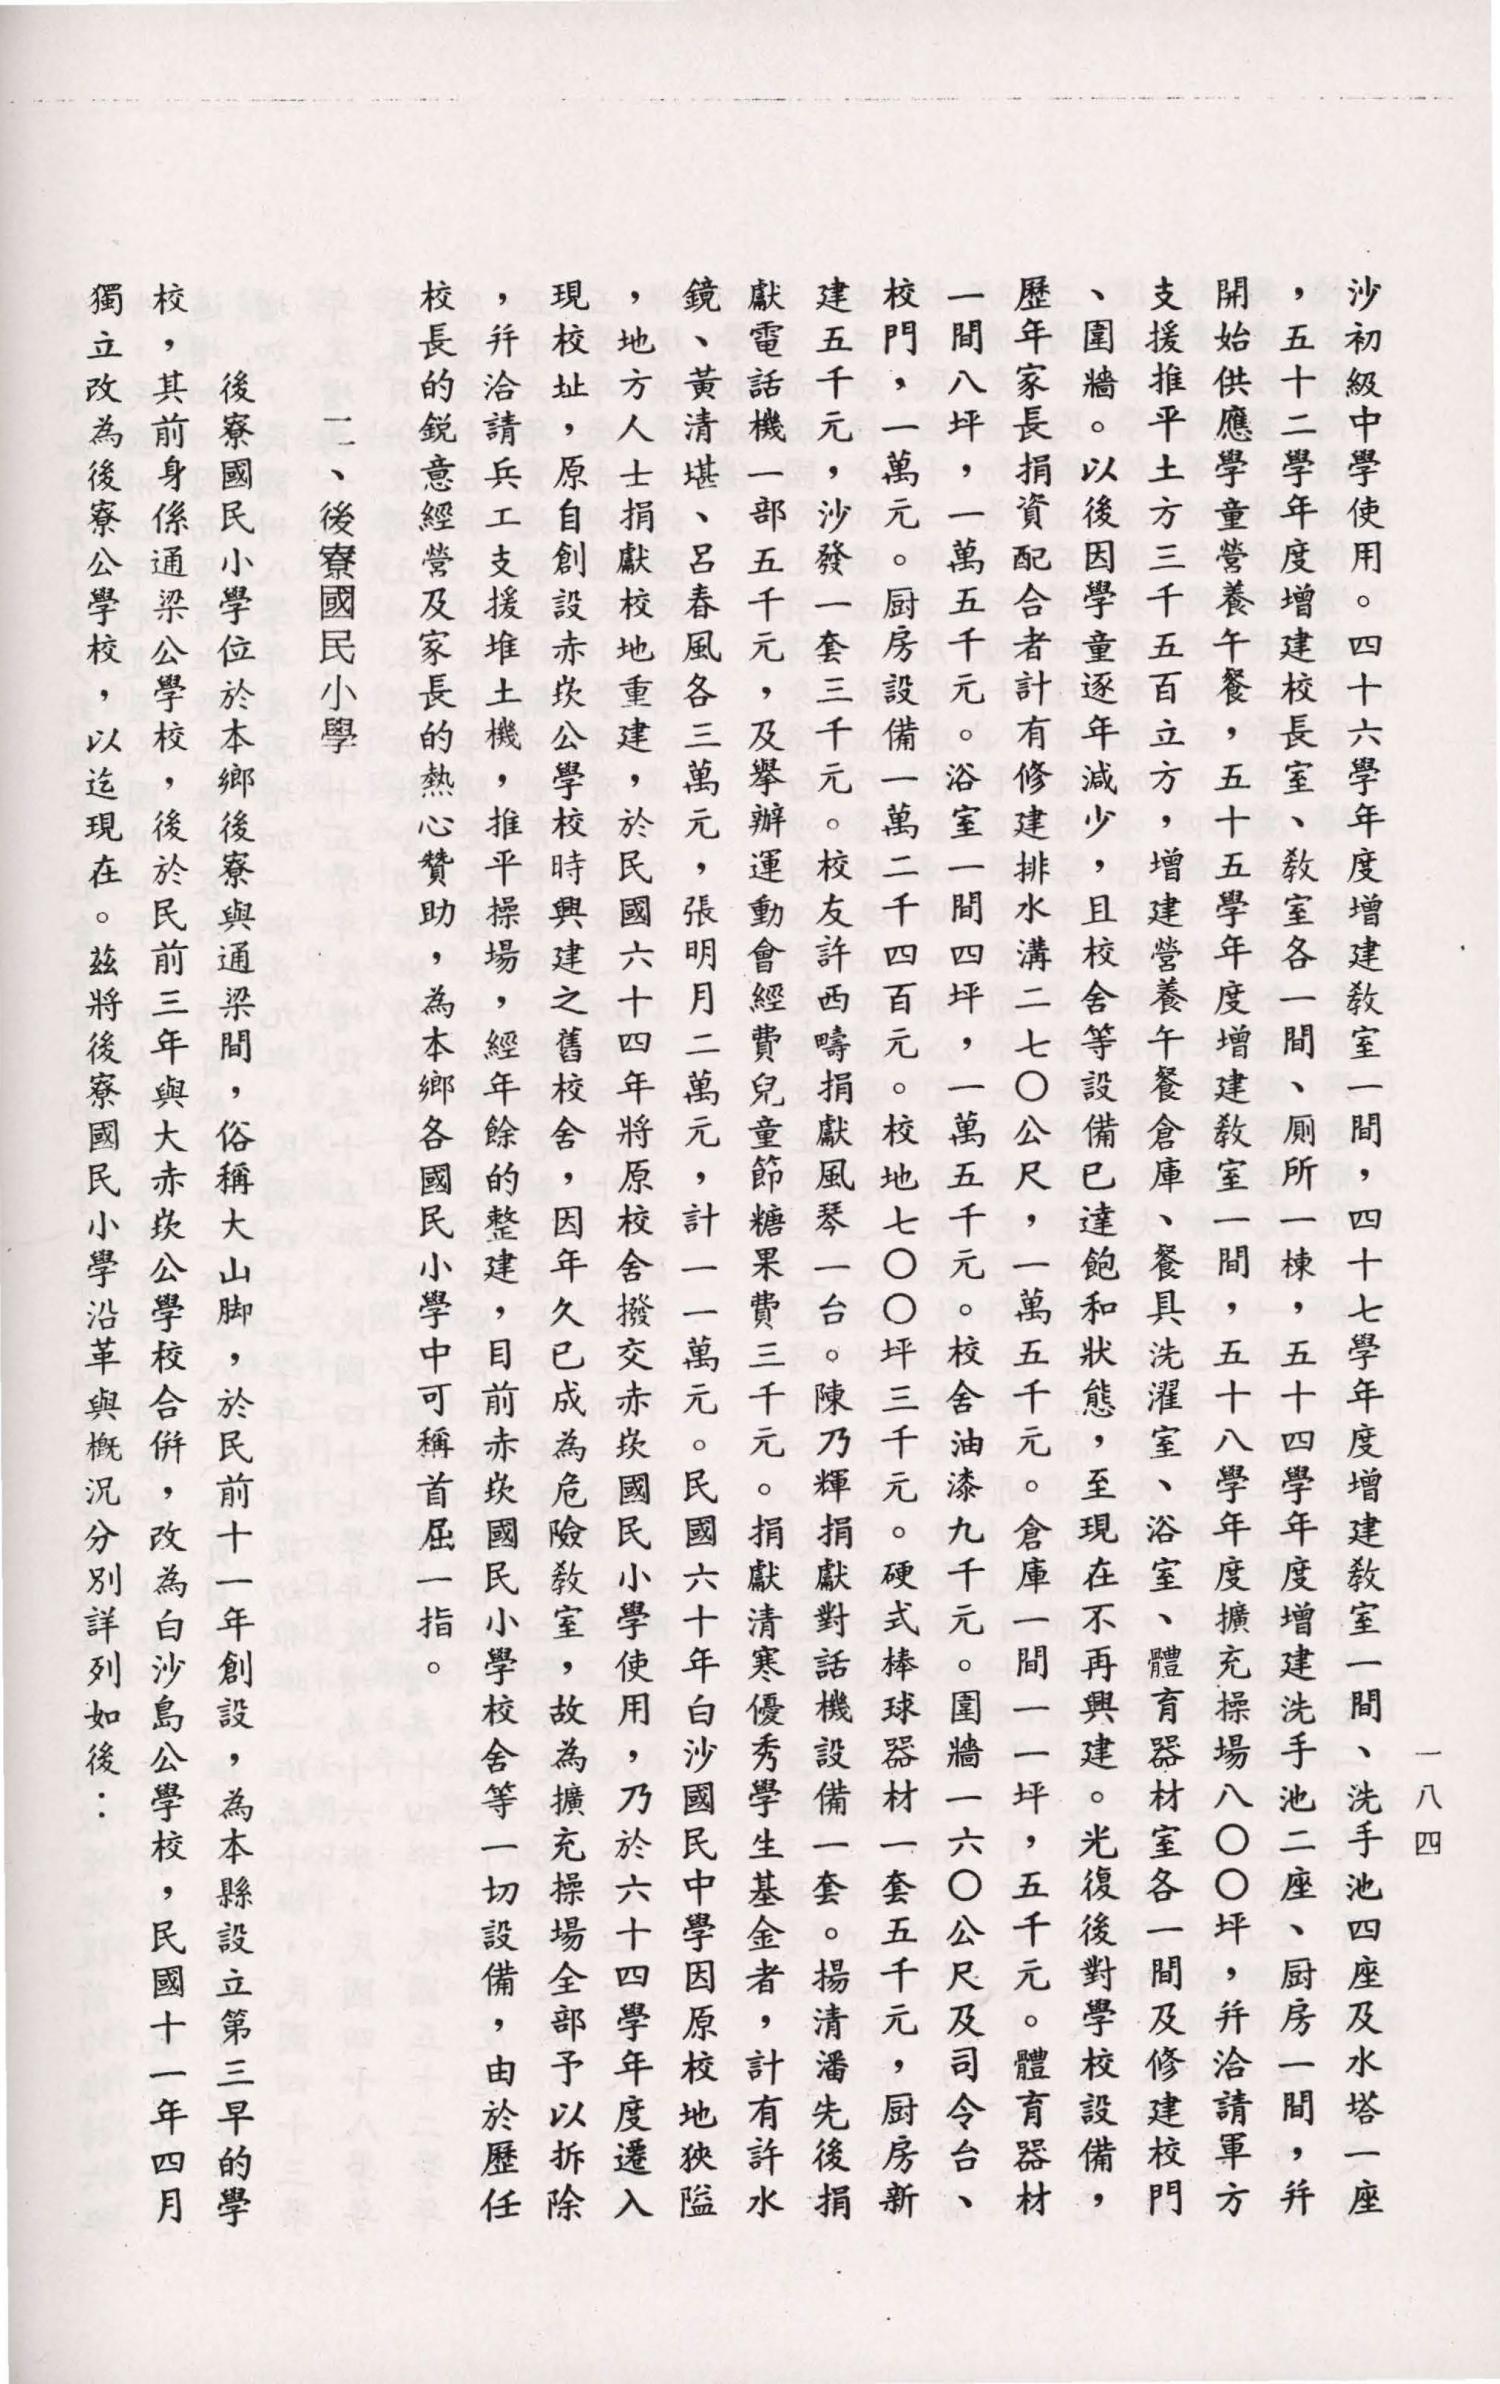 一八四
沙初級中學使用。四十六學年度增建教室一間，四十七學年度增建教室一間、洗手池四座及水塔一座
，五十二學年度增建校長室、教室各一間、厠所一棟，五十四學年度增建洗手池二座、厨房一間，幷
開始供應學童營養午餐，五十五學年度增建教室一間，五十八學年度擴充操場八〇〇坪，幷洽請軍方
支援推平土方三千五百立方，增建營養午餐倉庫、餐具洗濯室、浴室、體育器材室各一間及修建校門
、圍牆。以後因學童逐年減少，且校舍等設備已達飽和狀態，至現在不再興建。光復後對學校設備，
歷年家長捐資配合者計有修建排水溝二七〇公尺，一萬五千元。倉庫一間一一坪，五千元。體育器材
一間八坪，一萬五千元。浴室一間四坪，一萬五千元。校舍油漆九千元。圍牆一六〇公尺及司令台、
校門，一萬元。厨房設備一萬二千四百元。校地七〇〇坪三千元。硬式棒球器材一套五千元，厨房新
建五千元，沙發一套三千元。校友許西疇捐獻風琴一台。陳乃輝捐獻對話機設備一套。揚清潘先後捐
獻電話機一部五千元，及舉辦運動會經費兒童節糖果費三千元。捐獻清寒優秀學生基金者，計有許水
鏡、黃清堪、呂春風各三萬元，張明月二萬元，計一一萬元。民國六十年白沙國民中學因原校地狹隘
，地方人士捐獻校地重建，於民國六十四年將原校舍撥交赤崁國民小學使用，乃於六十四學年度遷入
現校址，原自創設赤崁公學校時興建之舊校舍，因年久已成為危險教室，故為擴充操場全部予以拆除
，幷洽請兵工支援堆土機，推平操場，經年餘的整建，目前赤崁國民小學校舍等一切設備，由於歷任
校長的銳意經營及家長的熱心贊助，為本鄉各國民小學中可稱首屈一指。
二、後寮國民小學
後寮國民小學位於本鄉後寮與通梁間，俗稱大山脚，於民前十一年創設，為本縣設立第三早的學
校，其前身係通梁公學校，後於民前三年與大赤崁公學校合併，改為白沙島公學校，民國十一年四月
獨立改為後寮公學校，以迄現在。茲將後寮國民小學沿革與概況分別詳列如後：